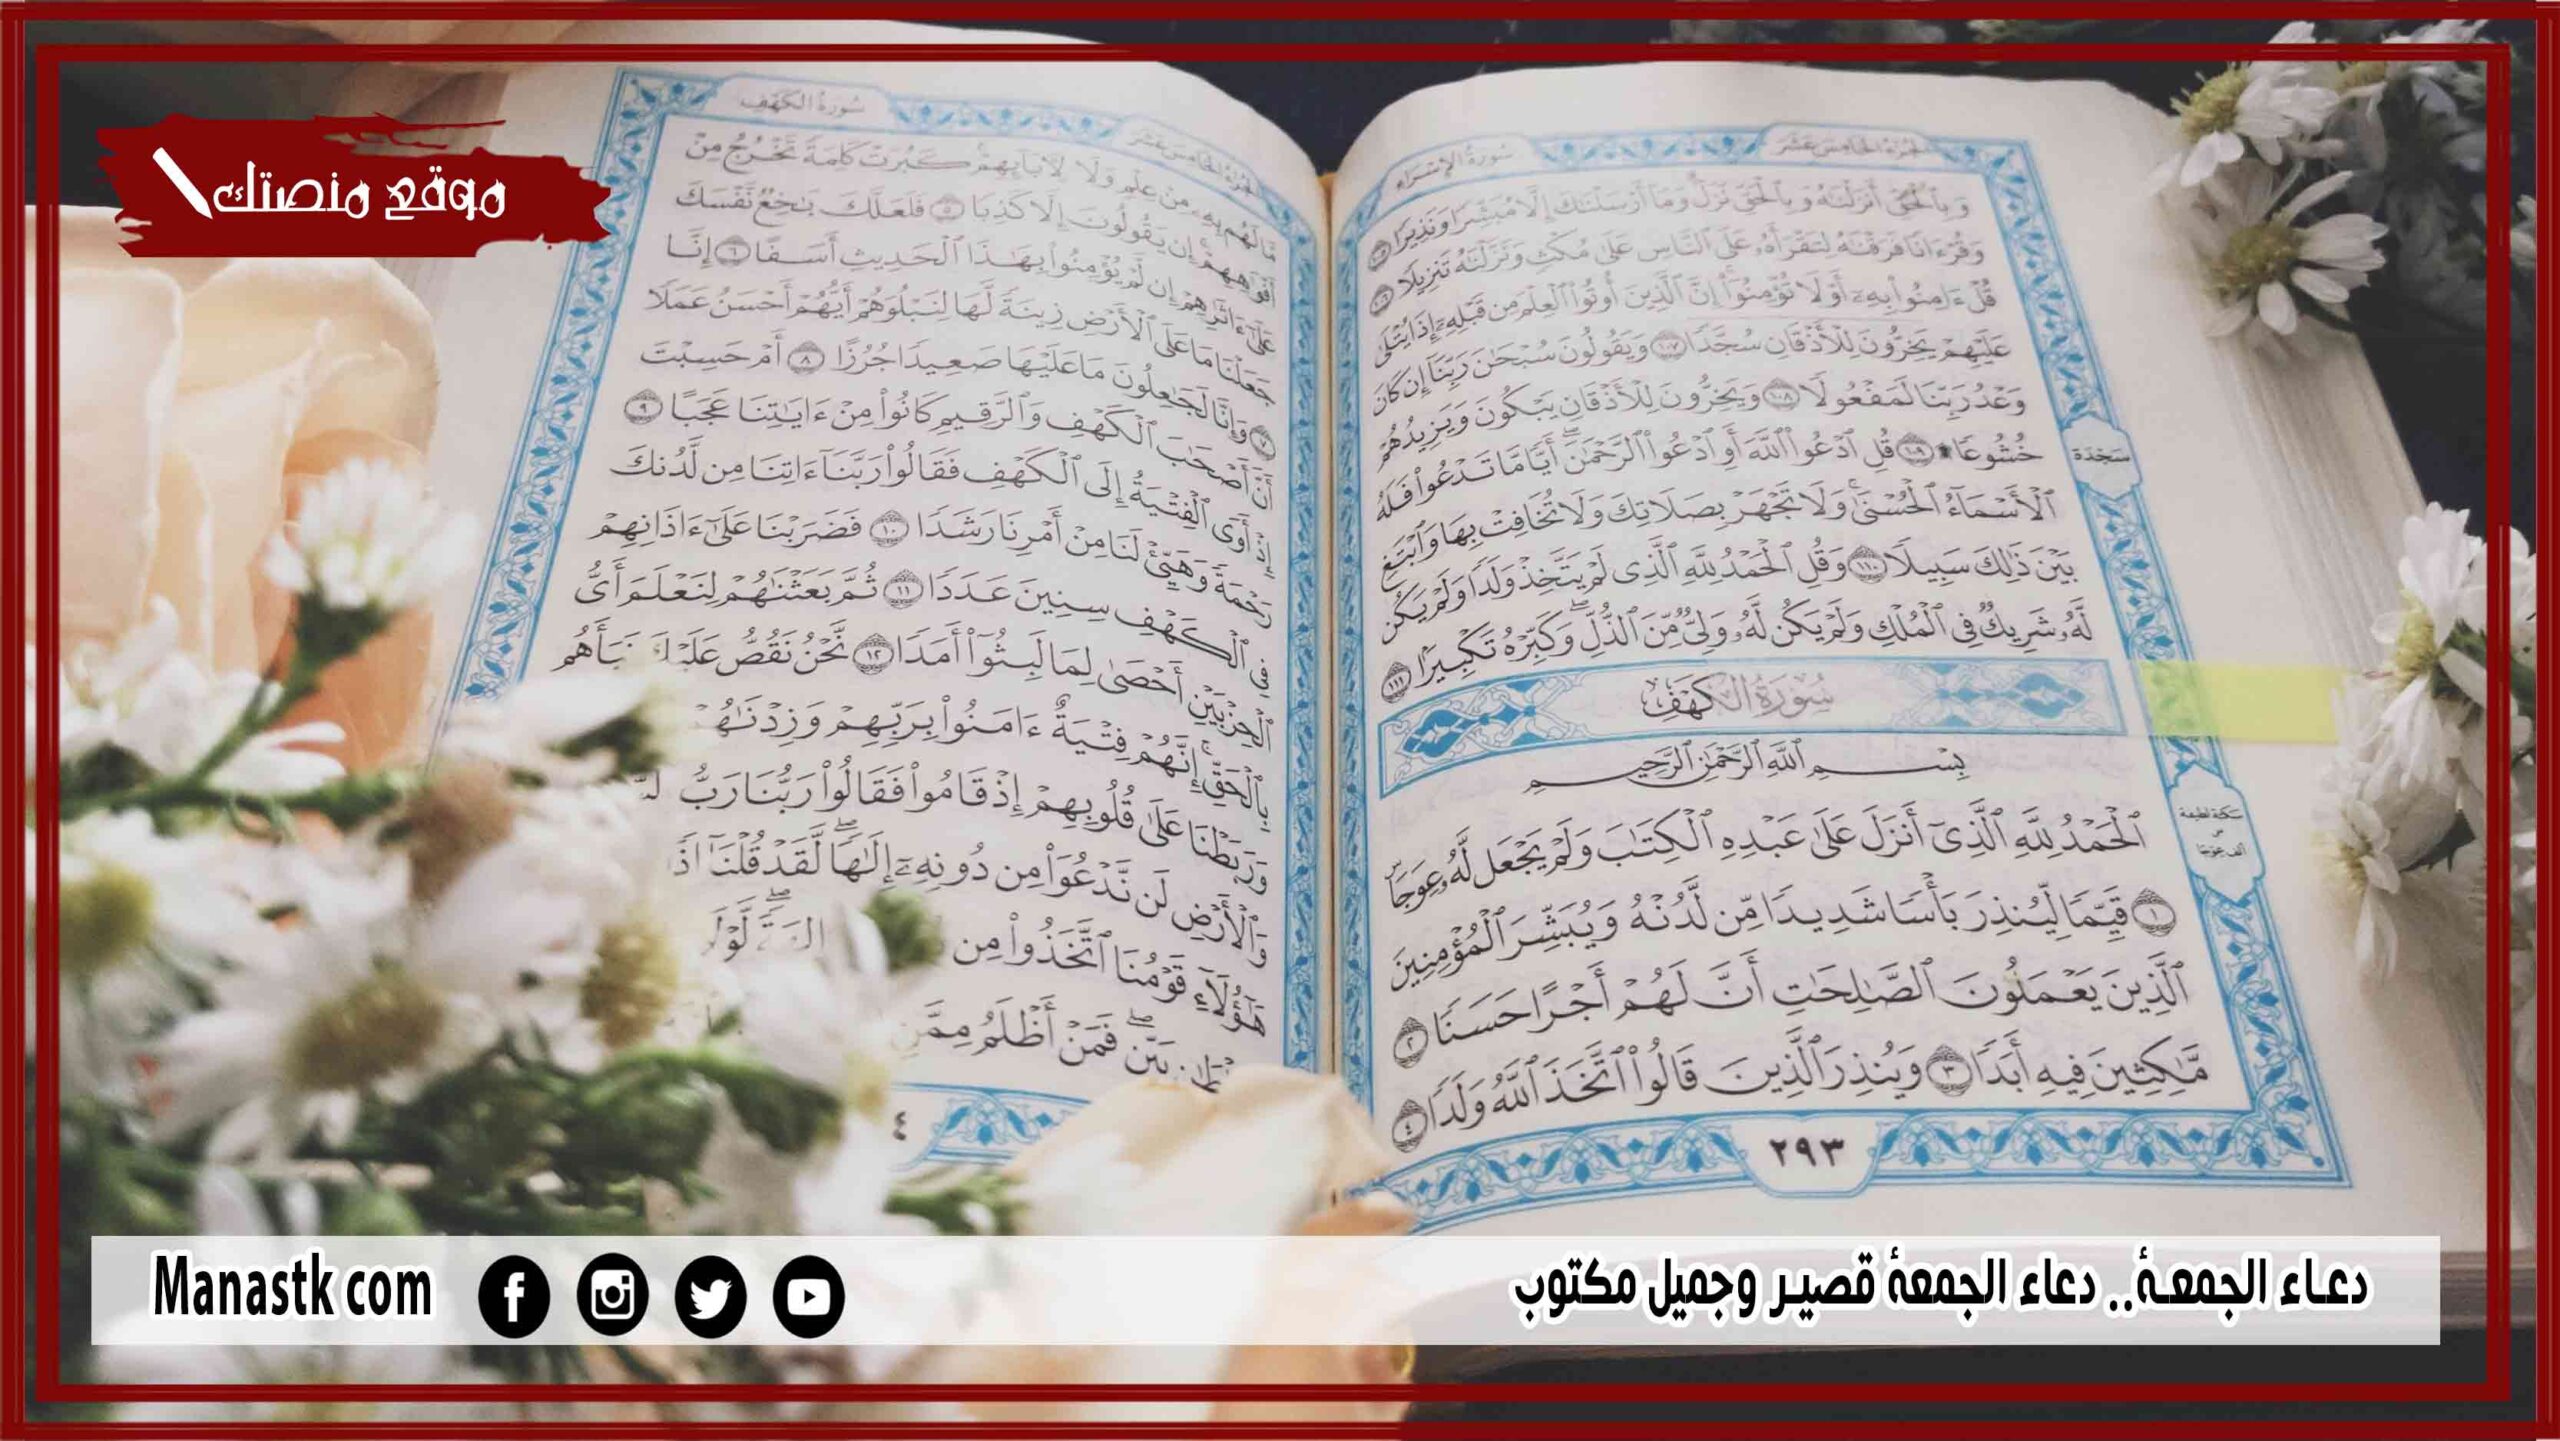 موقع منصتك
سورة الإسراء
الجزء الخامس عشر
وَبِالْحَقِّ أَنزَلْنَاهُ وَبِالْحَقِّ نَزَلَ وَمَا أَرْسَلْنَاكَ إِلَّا مُبَشِّرًا وَنَذِيرًا ١٠٥
وَقُرْءَانًا فَرَقْنَاهُ لِتَقْرَأَهُ عَلَى النَّاسِ عَلَى مُكْثٍ وَنَزَّلْنَاهُ تَنزِيلًا ١٠٦
قُلْ ءَامِنُوا بِهِ أَوْ لَا تُؤْمِنُوا إِنَّ الَّذِينَ أُوتُوا الْعِلْمَ مِن قَبْلِهِ إِذَا يُتْلَى
عَلَيْهِمْ يَخِرُّونَ لِلْأَذْقَانِ سُجَّدًا ١٠٧ وَيَقُولُونَ سُبْحَانَ رَبِّنَا إِن كَانَ
وَعْدُ رَبِّنَا لَمَفْعُولًا ١٠٨ وَيَخِرُّونَ لِلْأَذْقَانِ يَبْكُونَ وَيَزِيدُهُمْ
خُشُوعًا ۩ ١٠٩ قُلِ ادْعُوا اللَّهَ أَوِ ادْعُوا الرَّحْمَٰنَ أَيًّا مَّا تَدْعُوا فَلَهُ
سجدة
الْأَسْمَاءُ الْحُسْنَى وَلَا تَجْهَرْ بِصَلَاتِكَ وَلَا تُخَافِتْ بِهَا وَابْتَغِ
بَيْنَ ذَٰلِكَ سَبِيلًا ١١٠ وَقُلِ الْحَمْدُ لِلَّهِ الَّذِي لَمْ يَتَّخِذْ وَلَدًا وَلَمْ يَكُن
لَّهُ شَرِيكٌ فِي الْمُلْكِ وَلَمْ يَكُن لَّهُ وَلِيٌّ مِّنَ الذُّلِّ وَكَبِّرْهُ تَكْبِيرًا ١١١
سورة الكهف
بِسْمِ اللَّهِ الرَّحْمَٰنِ الرَّحِيمِ
الْحَمْدُ لِلَّهِ الَّذِي أَنزَلَ عَلَى عَبْدِهِ الْكِتَابَ وَلَمْ يَجْعَل لَّهُ عِوَجًا
سكتة لطيفة
على
ألف عوجا
١ قَيِّمًا لِّيُنذِرَ بَأْسًا شَدِيدًا مِّن لَّدُنْهُ وَيُبَشِّرَ الْمُؤْمِنِينَ
الَّذِينَ يَعْمَلُونَ الصَّالِحَاتِ أَنَّ لَهُمْ أَجْرًا حَسَنًا ٢
مَّاكِثِينَ فِيهِ أَبَدًا ٣ وَيُنذِرَ الَّذِينَ قَالُوا اتَّخَذَ اللَّهُ وَلَدًا ٤
٢٩٣
الجزء الخامس عشر
سورة الكهف
مَّا لَهُم بِهِ مِنْ عِلْمٍ وَلَا لِآبَائِهِمْ كَبُرَتْ كَلِمَةً تَخْرُجُ مِنْ
أَفْوَاهِهِمْ إِن يَقُولُونَ إِلَّا كَذِبًا ٥ فَلَعَلَّكَ بَاخِعٌ نَّفْسَكَ
عَلَى ءَاثَارِهِمْ إِن لَّمْ يُؤْمِنُوا بِهَٰذَا الْحَدِيثِ أَسَفًا ٦ إِنَّا
جَعَلْنَا مَا عَلَى الْأَرْضِ زِينَةً لَّهَا لِنَبْلُوَهُمْ أَيُّهُمْ أَحْسَنُ عَمَلًا
٧ وَإِنَّا لَجَاعِلُونَ مَا عَلَيْهَا صَعِيدًا جُرُزًا ٨ أَمْ حَسِبْتَ
أَنَّ أَصْحَابَ الْكَهْفِ وَالرَّقِيمِ كَانُوا مِنْ ءَايَاتِنَا عَجَبًا ٩
إِذْ أَوَى الْفِتْيَةُ إِلَى الْكَهْفِ فَقَالُوا رَبَّنَا ءَاتِنَا مِن لَّدُنكَ
رَحْمَةً وَهَيِّئْ لَنَا مِنْ أَمْرِنَا رَشَدًا ١٠ فَضَرَبْنَا عَلَى ءَاذَانِهِمْ
فِي الْكَهْفِ سِنِينَ عَدَدًا ١١ ثُمَّ بَعَثْنَاهُمْ لِنَعْلَمَ أَيُّ
الْحِزْبَيْنِ أَحْصَى لِمَا لَبِثُوا أَمَدًا ١٢ نَّحْنُ نَقُصُّ عَلَيْكَ نَبَأَهُم
بِالْحَقِّ إِنَّهُمْ فِتْيَةٌ ءَامَنُوا بِرَبِّهِمْ وَزِدْنَاهُمْ
وَرَبَطْنَا عَلَى قُلُوبِهِمْ إِذْ قَامُوا فَقَالُوا رَبُّنَا رَبُّ
وَالْأَرْضِ لَن نَّدْعُوَا مِن دُونِهِ إِلَٰهًا لَّقَدْ قُلْنَا إِذًا
هَٰؤُلَاءِ قَوْمُنَا اتَّخَذُوا مِن
بَيِّنٍ فَمَنْ أَظْلَمُ مِمَّنِ
دعاء الجمعة.. دعاء الجمعة قصير وجميل مكتوب
Manastk com